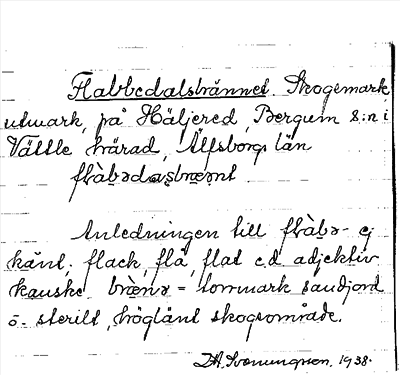 Flabbedalsbrännet. Skogsmark,
utmark, på Häljered, Bergum s:n i
Vättle härad, Älfsborgs län
flàbədasbrænt
Anledningen till flàbə- ej
känt; flack, flå, flat e.d. adjektiv
kanske. brænə = torrmark sandjord
o. sterilt, höglänt skogsområde.
1938.